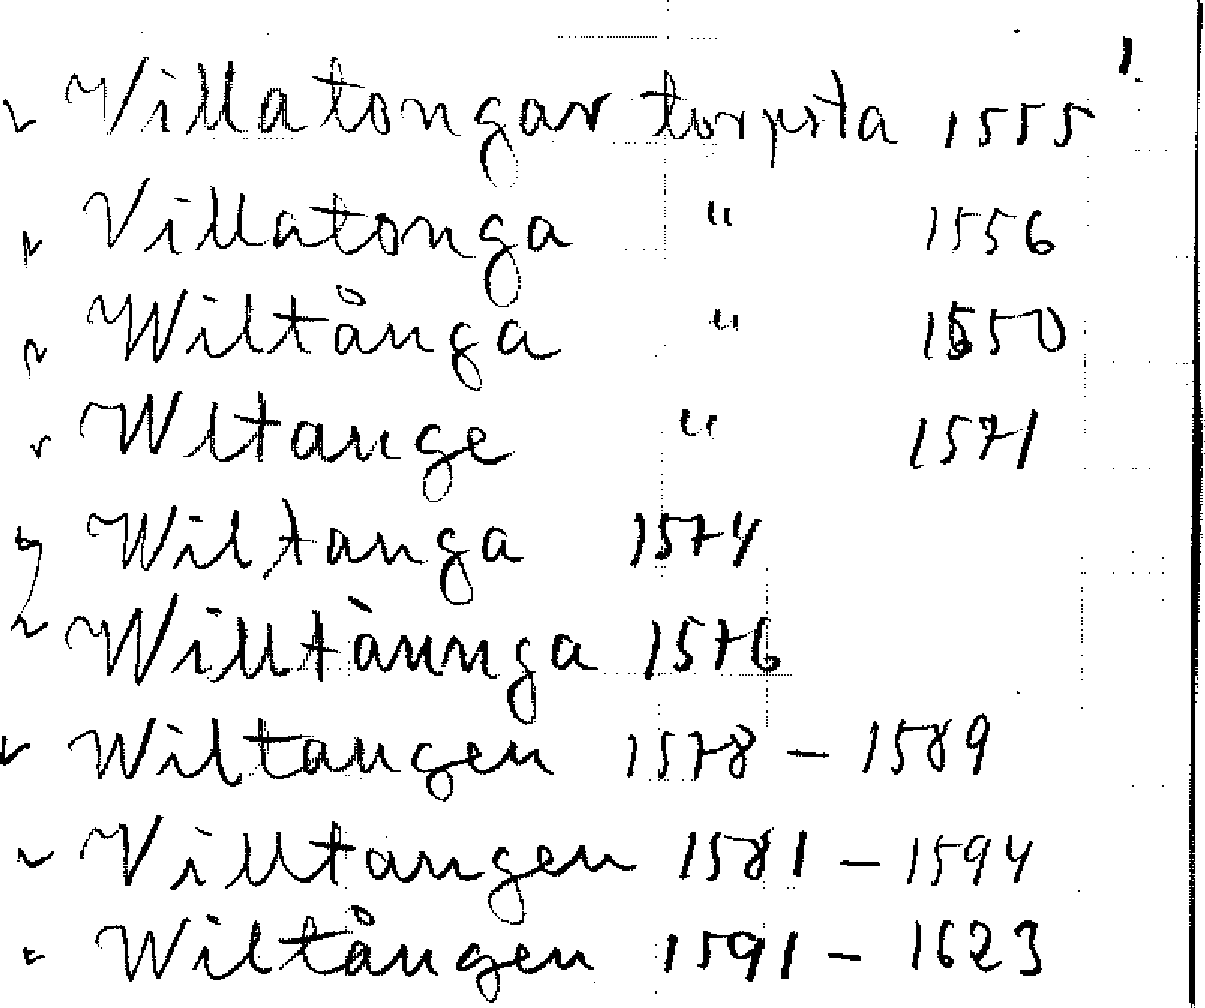 1.
Villatongar torpsta 1555
Villatonga " 1556
Wiltånga " 1550
Wltange " 1571
Wiltanga 1574
Willtànnga 1576
Wiltangen 1578 – 1589
Villtangen 1581 – 1594
Wiltången 1591 – 1623